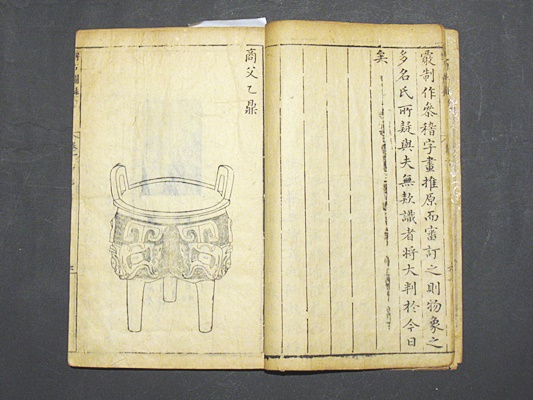 覈制作參稽字畫推原而審訂之則物象之
多名氏所疑與夫無款識者將大判於今日
矣
商父乙鼎